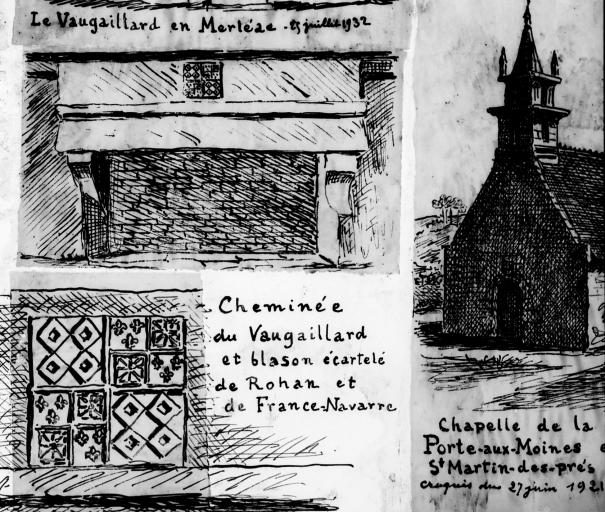 Le Vaugaillard en Merléac - 25 juillet 1932
Cheminée
du Vaugaillard
et blason écartelé
de Rohan et
de France-Navarre
Chapelle de la
Porte-aux-Moines e
St Martin-des-prés
croquis du 27 juin 1921